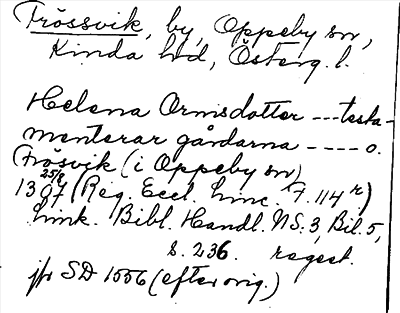 Frössvik, by, Oppeby sn,
Kinda hd, Österg. l.
Helena Ormsdotter --- testa-
menterar gårdarna ---- o.
Frösvik (i Oppeby sn)
25/8
1307 (Reg. Eccl. Linc. F. 114 r.)
Link. Bibl. Handl. NS. 3, Bil. 5,
s. 236. regest.
jfr SD 1556 (efter orig.)